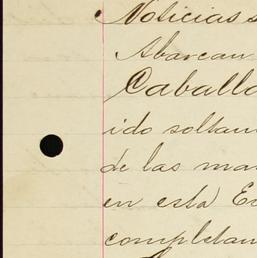 Noticias s
Abarcan
Caballo
ido soltan
de las ma
en esta E
completan